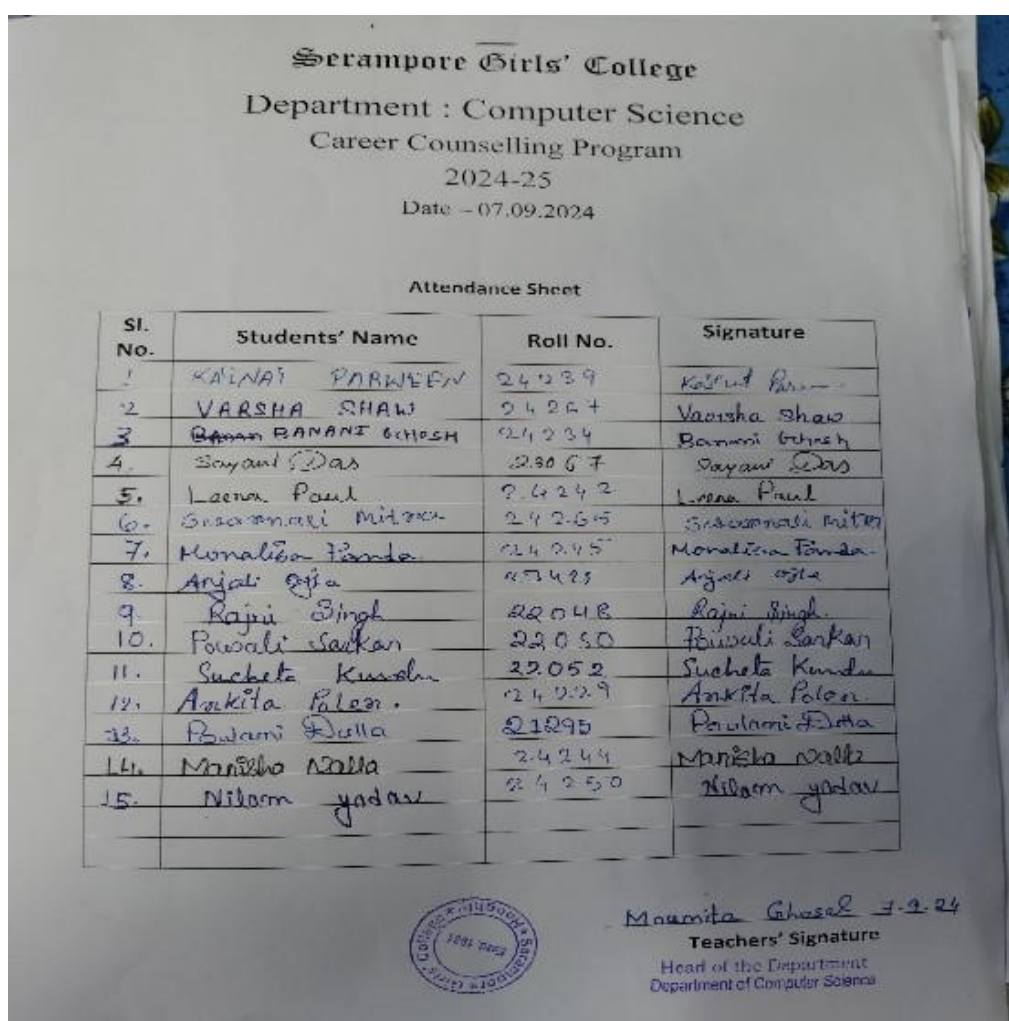 Serampore Girls' College
Department : Computer Science
Career Counselling Program
2024-25
Date – 07.09.2024
Attendance Sheet
Sl. No. Students' Name Roll No. Signature
1 KAINAT PARWEEN 24239
2 VARSHA SHAW 24267 Varsha Shaw
3 BANANI GHOSH 24234 Banani Ghosh
4. Sayani Das 23067 Sayani Das
5. Leena Paul 24242 Leena Paul
6. Mitra 24265 Mitra
7. Monalisa Panda 24245 Monalisa Panda
8. Anjali Ojha Anjali Ojha
9. Rajni Singh 22048 Rajni Singh
10. Sarkar 22050 Sarkar
11. Sucheta Kundu 22052 Sucheta Kundu
12. Ankita Polen. 24229 Ankita Polen.
13. Poulami Dutta 21295 Poulami Dutta
14. Manisha 24244 Manisha
15. Nilam yadav 24250 Nilam yadav
Serampore Girls' College * Hooghly *
Estd. 1981
Moumita Ghosal 7.9.24
Teachers' Signature
Head of the Department
Department of Computer Science